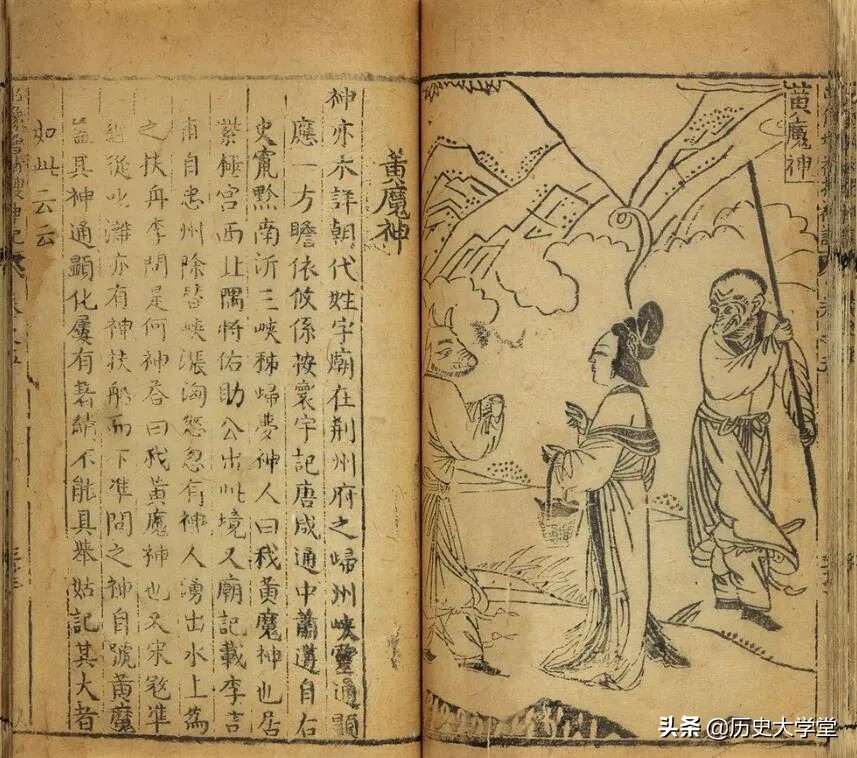 黃魔神
黃魔神
神亦不詳朝代姓字廟在荆州府之歸州峽靈通顯
應一方瞻依攸係按寰宇記唐咸通中蕭遘自右
史竄黔南泝三峽秭歸夢神人曰我黃魔神也居
紫極宮西北隅將佑助公出此境又廟記載李吉
甫自忠州除替峽漲洶怒忽有神人湧出水上爲
之扶舟李問是何神答曰我黃魔神也又宋寇準
經從叱灘亦有神扶船而下準問之神自號黃魔
蓋其神通顯化屢有著績不能具舉姑記其大者
如此云云
头条 @历史大学堂